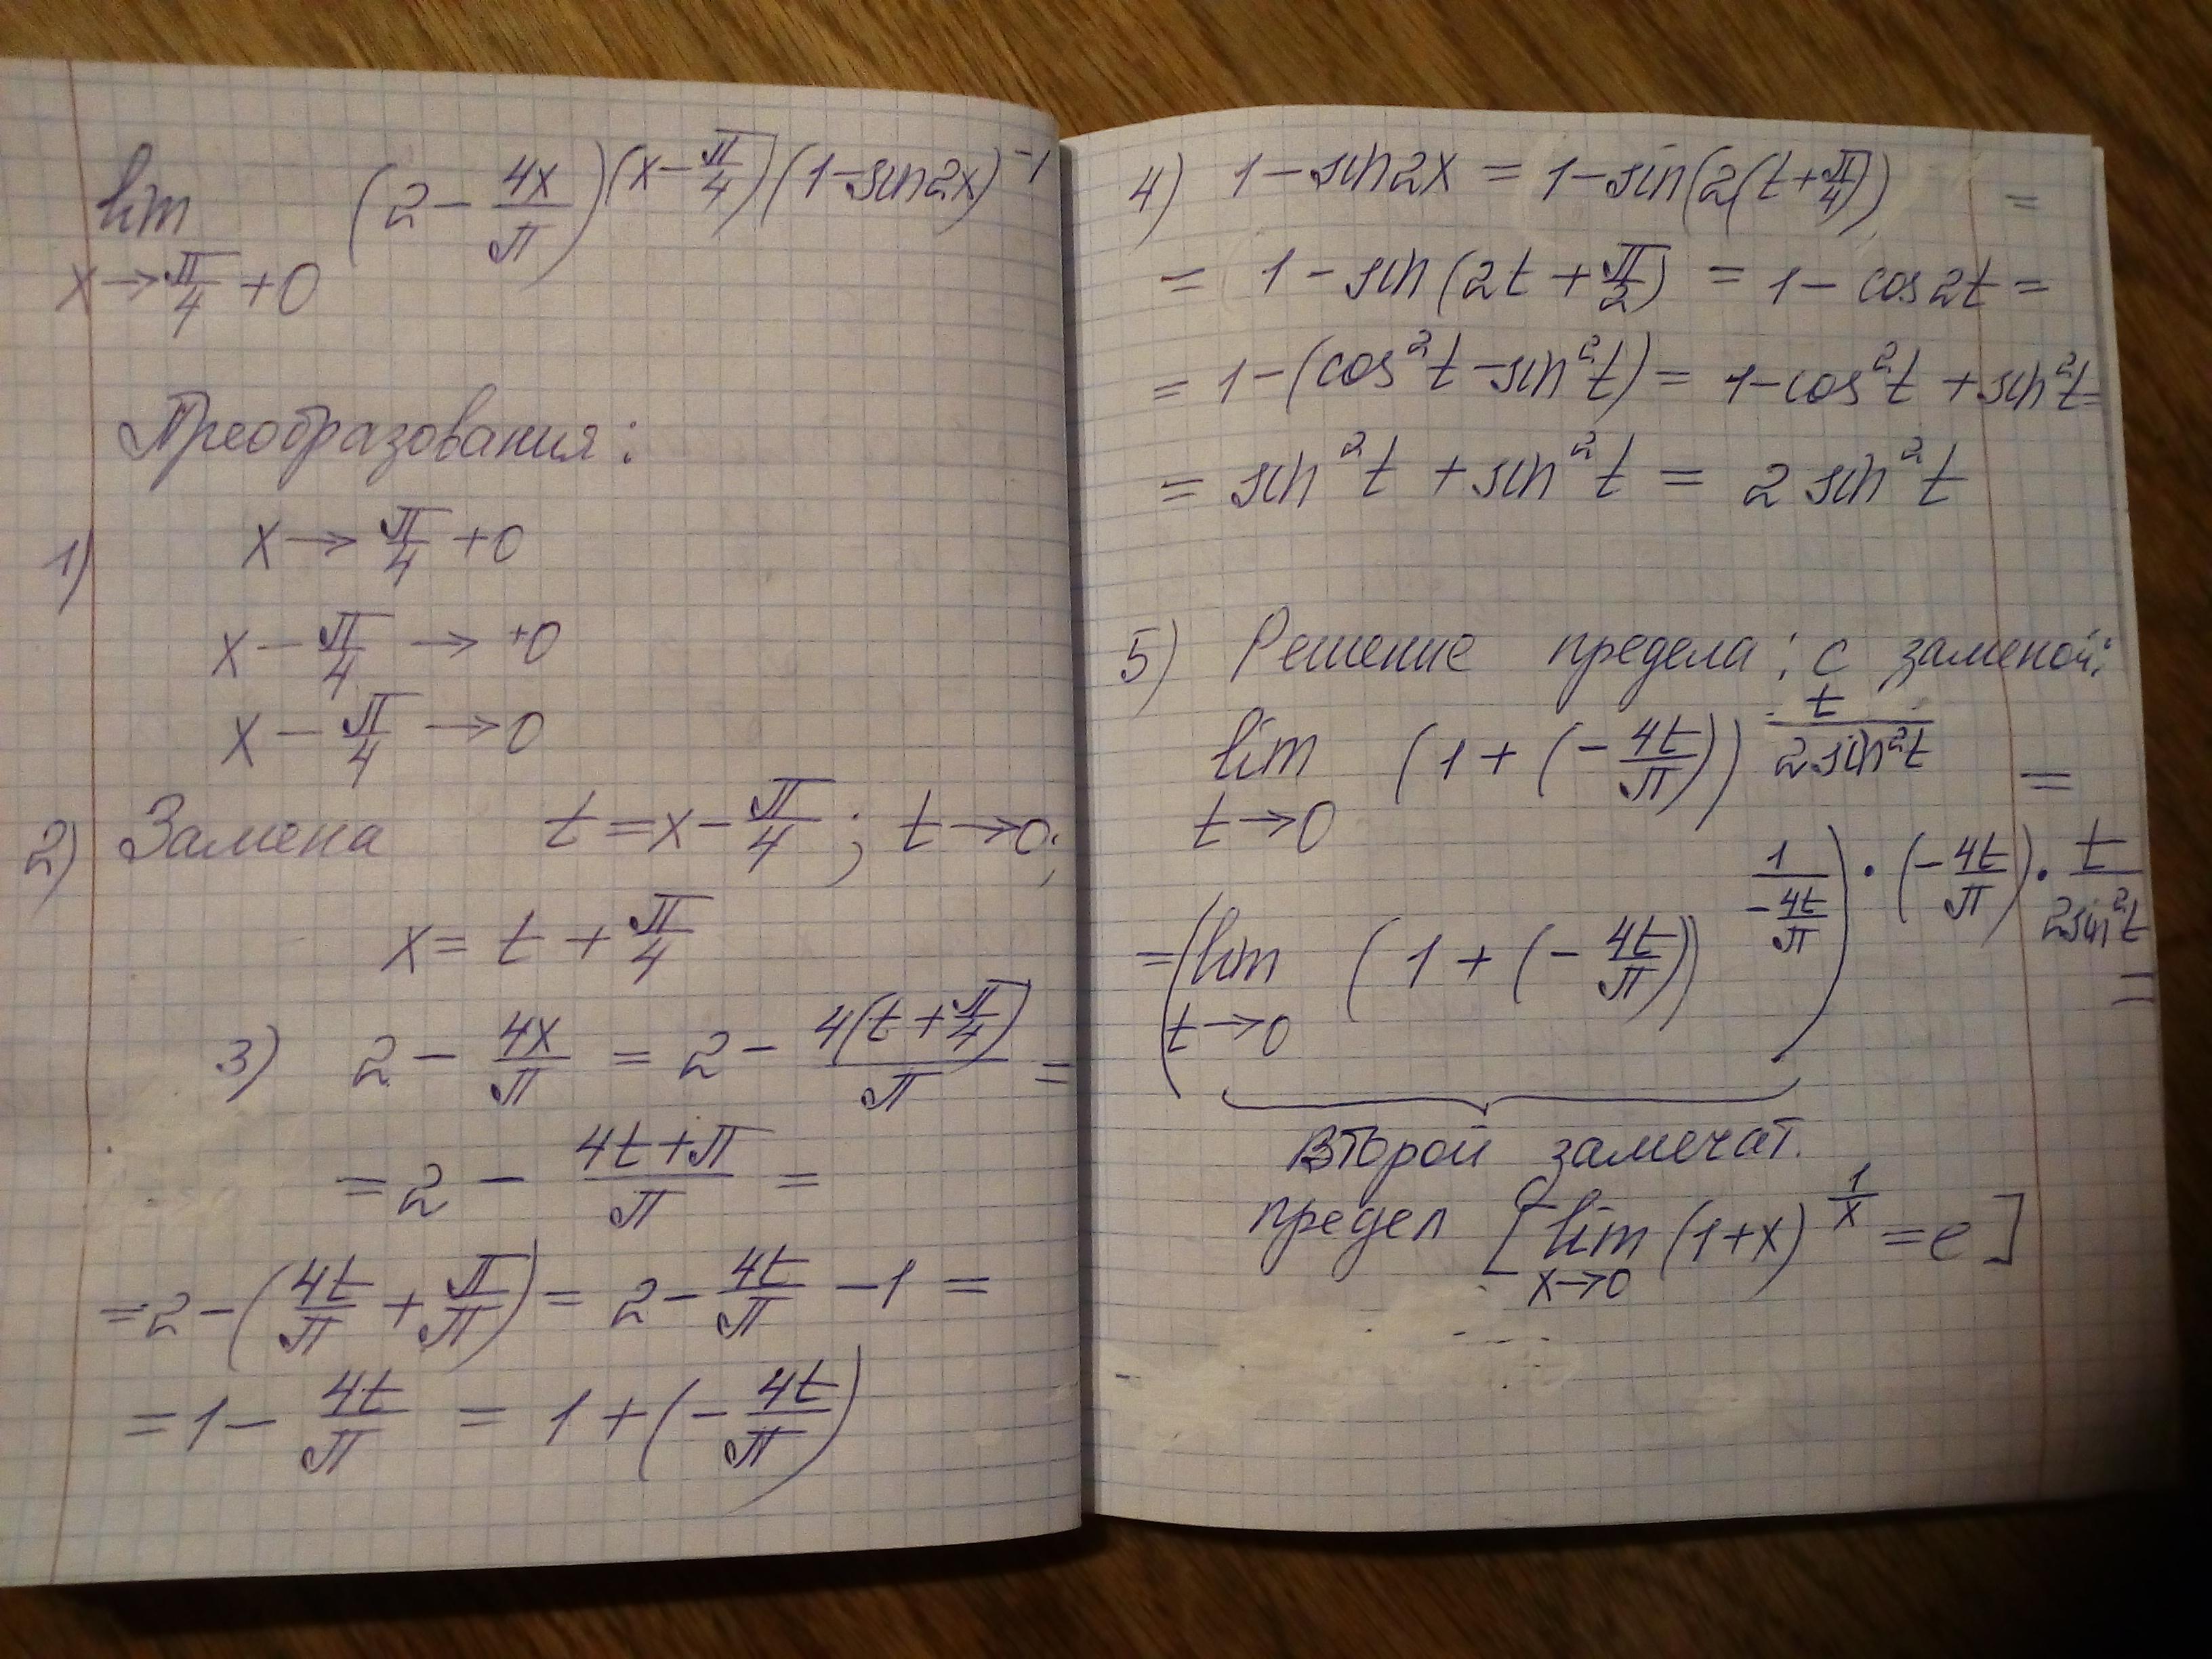 lim (2 - 4x/π)^((x - π/4)(1 - sin2x)^-1)
x → π/4 + 0
Преобразования:
1) x → π/4 + 0
x - π/4 → +0
x - π/4 → 0
2) Замена t = x - π/4; t → 0;
x = t + π/4
3) 2 - 4x/π = 2 - 4(t + π/4)/π =
= 2 - (4t + π)/π =
= 2 - (4t/π + π/π) = 2 - 4t/π - 1 =
= 1 - 4t/π = 1 + (- 4t/π)
4) 1 - sin2x = 1 - sin(2(t + π/4)) =
= 1 - sin(2t + π/2) = 1 - cos2t =
= 1 - (cos²t - sin²t) = 1 - cos²t + sin²t =
= sin²t + sin²t = 2 sin²t
5) Решение предела: с заменой:
lim (1 + (- 4t/π))^(t/(2sin²t)) =
t → 0
= (lim (1 + (- 4t/π))^(1/(- 4t/π))) · (- 4t/π) · t/(2sin²t) =
t → 0
второй замечат.
предел [lim (1+x)^(1/x) = e]
x → 0